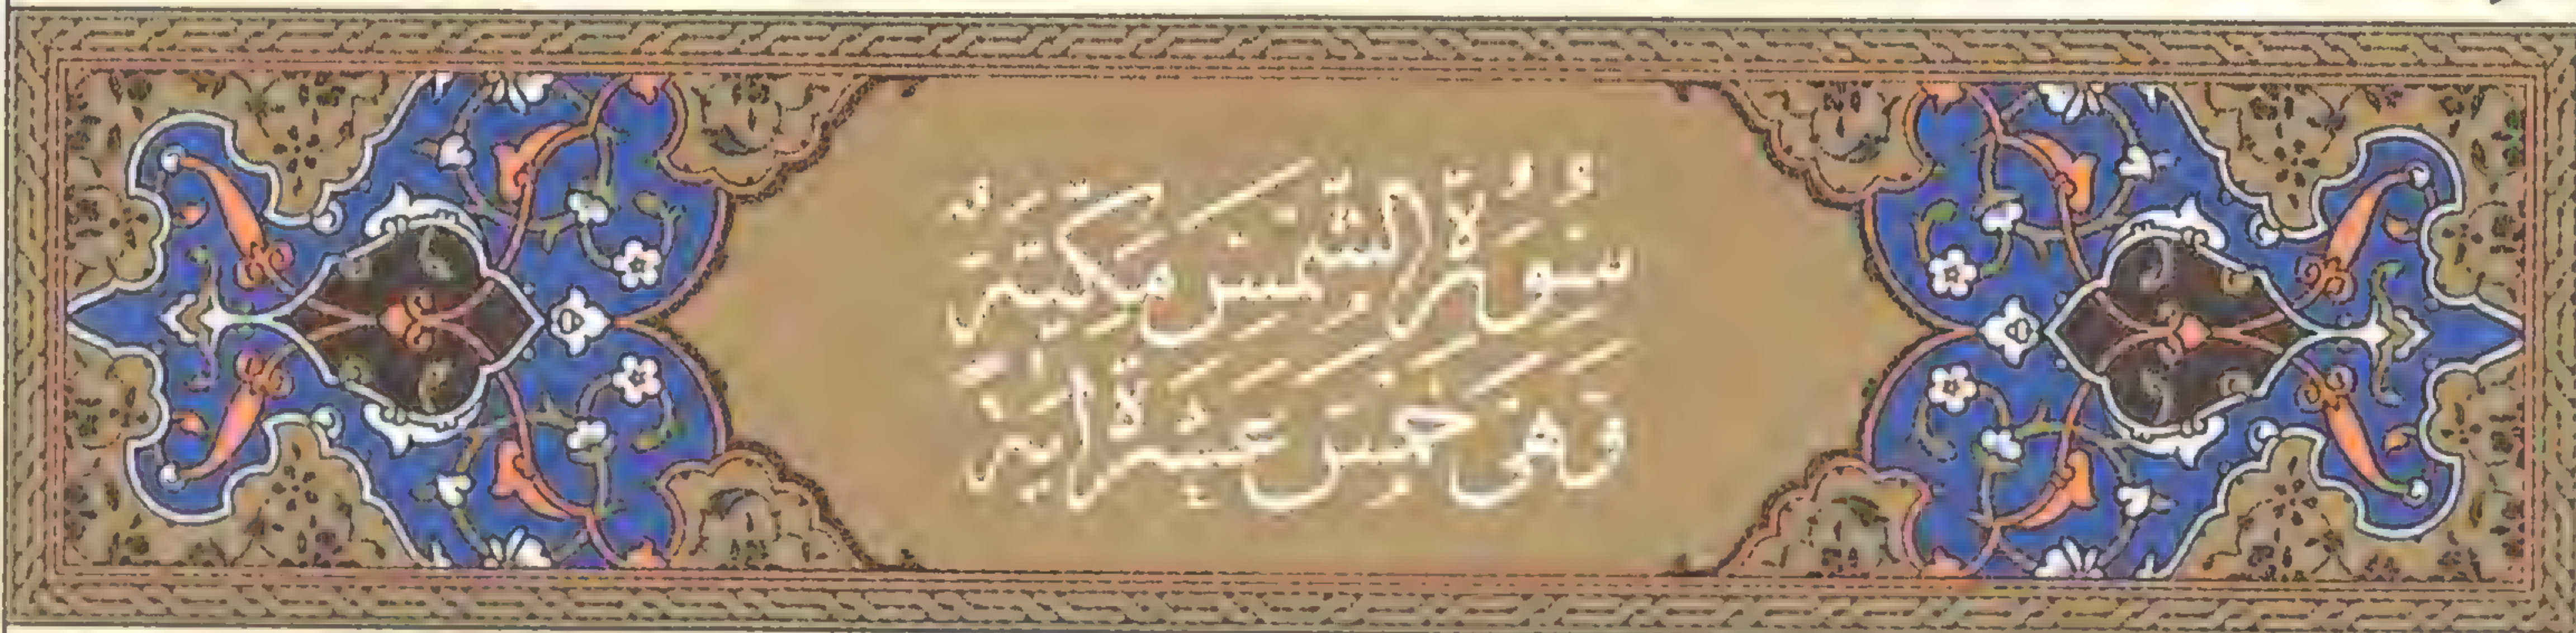 سُورَةُ الشَّمْسِ مَكِّيَّةٌ
وَهِيَ خَمْسَ عَشِرَةَ اٰيَةً